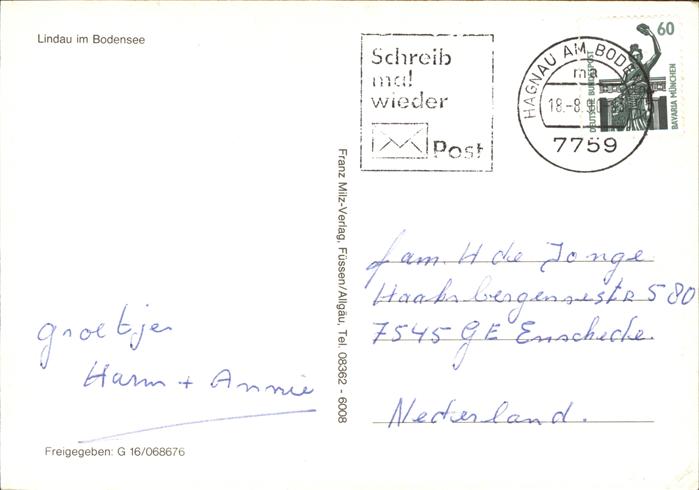 Lindau im Bodensee
Schreib
mal
wieder
Post
HAGNAU AM BODE
ma
18.-8.
7759
60
DEUTSCHE BUNDESPOST
BAVARIA MÜNCHEN
Franz Milz-Verlag, Füssen/Allgäu, Tel. 08362 - 6008
fam. H de Jonge
580
7545 GE Enschede.
Nederland.
groetjes
Harm + Annie
Freigegeben: G 16/068676